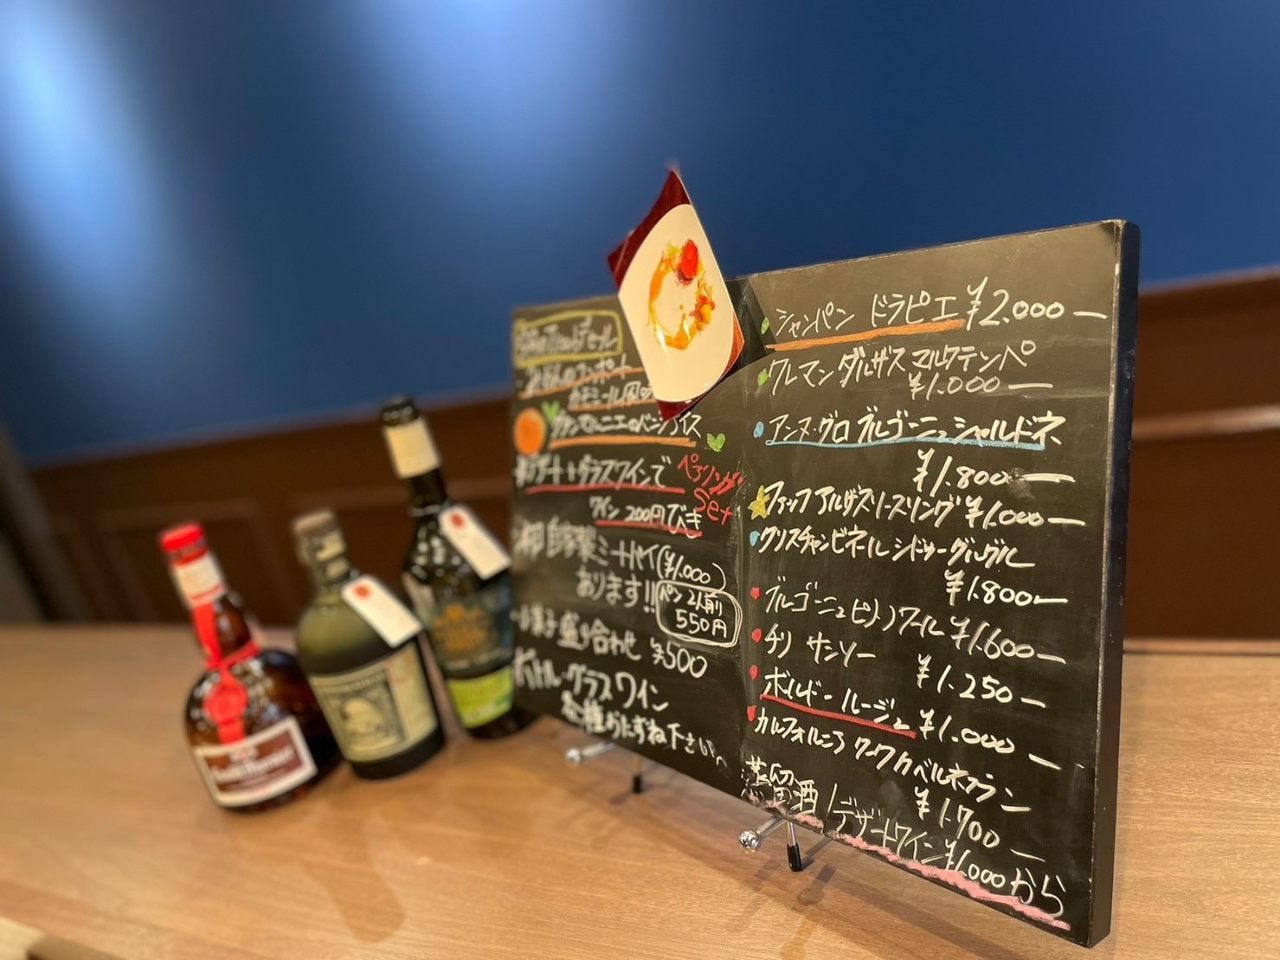 グランマルニエのバニラアイス
デザート+グラスワインで
ペアリング
Set
ワイン 200円びき
自家製ミートパイ(¥1.000)
あります!!
パン 2人前
550円
菓子盛り合わせ ¥500
ボトル・グラスワイン
各種おたずね下さい
シャンパン ドラピエ ¥2.000ー
クレマン ダルザス マルクテンペ
¥1.000ー
アンヌ・グロ ブルゴーニュ シャルドネ
¥1.800ー
ファッフ アルザス リースリング ¥1.000ー
クリスチャンビネール シドゥーグルグル
¥1.800ー
ブルゴーニュ ピノノワール ¥1.600ー
チリ サンソー
¥1.250ー
ボルドー ルージュ ¥1.000ー
カルフォルニア カベルネフラン
¥1.700ー
蒸留酒/デザートワイン ¥1.000から